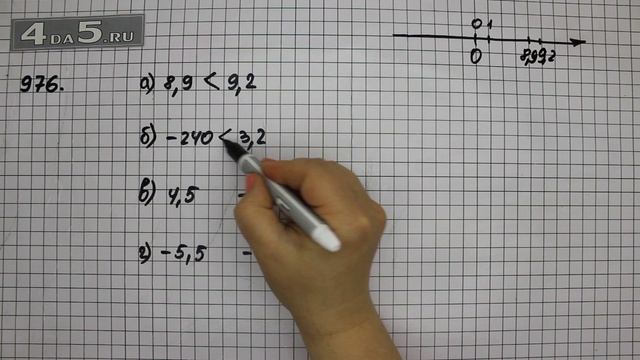 4DA5.RU
976.
а) 8,9 < 9,2
б) -240 < 3,2
в) 4,5 -
г) -5,5 -
0 1
0 8,9 9,2